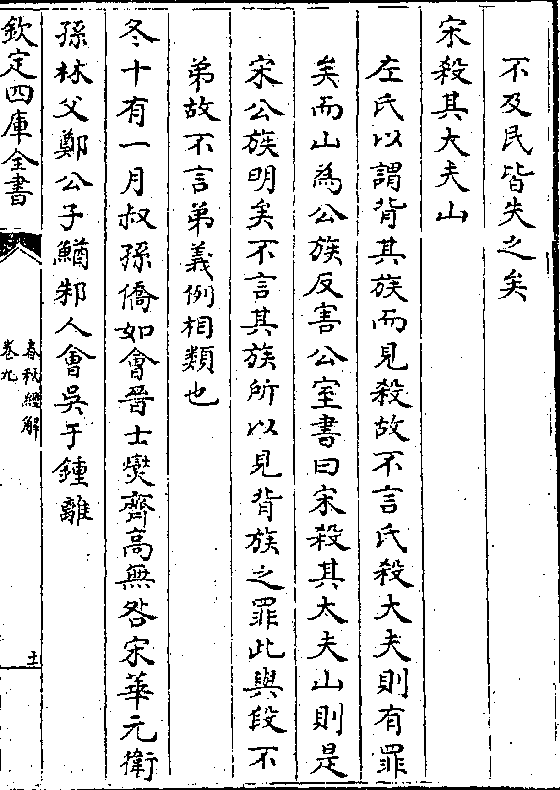 不及民皆失之矣
宋殺其大夫山
左氏以謂背其族而見殺故不言氏殺大夫則有罪
矣而山為公族反害公室書曰宋殺其大夫山則是
宋公族明矣不言其族所以見背族之罪此與段不
弟故不言弟義例相類也
冬十有一月叔孫僑如會晉士燮齊高無咎宋華元衛
孫林父鄭公子鰌邾人會吳于鍾離
欽定四庫全書
春秋經解
卷九
士